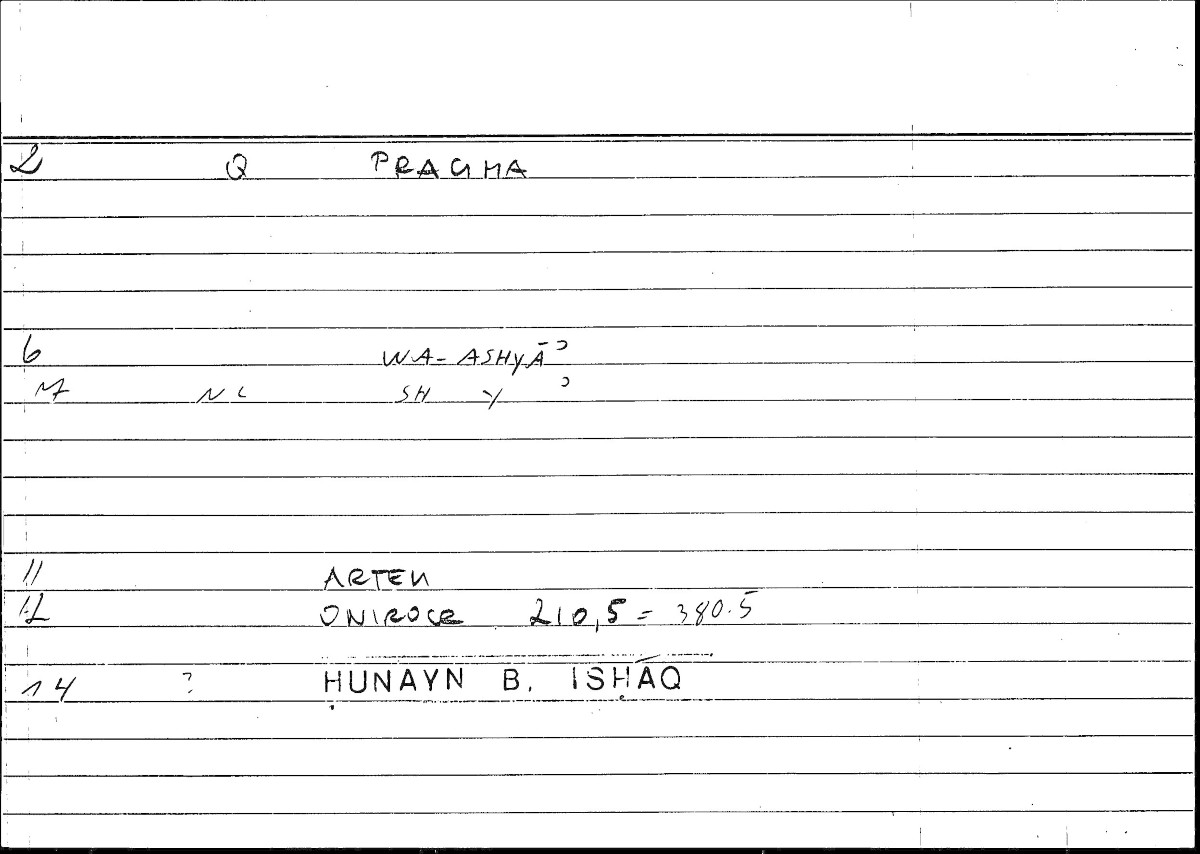 2 Q PRAGMA
6 WA-ASHYĀʾ
M NL SH Y ʾ
11 ARTEM
12 ONIROCR 210,5 = 380.5
14 ? ḤUNAYN B. ISḤĀQ